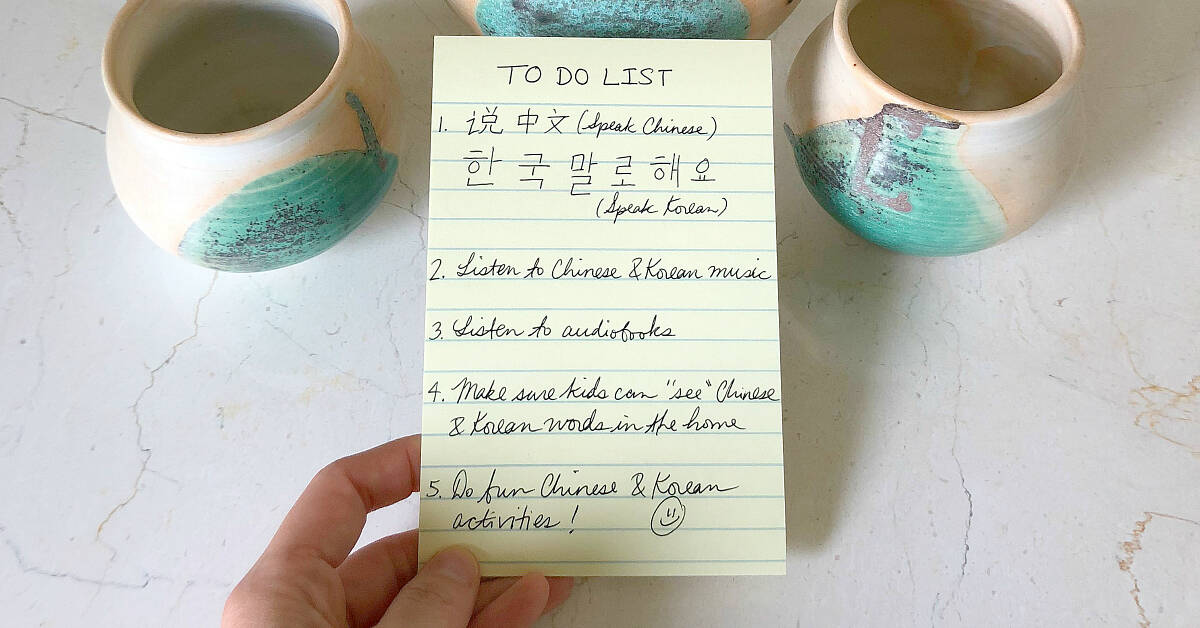 TO DO LIST
1. 说中文 (Speak Chinese)
한국말로해요
(Speak Korean)
2. Listen to Chinese & Korean music
3. Listen to audiobooks
4. Make sure kids can "see" Chinese
& Korean words in the home
5. Do fun Chinese & Korean
activities!